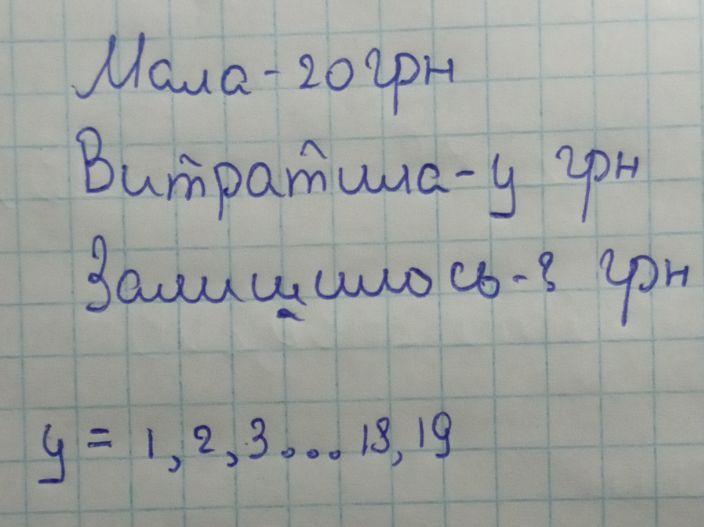 Мала - 20 грн
Витратила - у грн
Залишилось - ? грн
у = 1, 2, 3... 18, 19